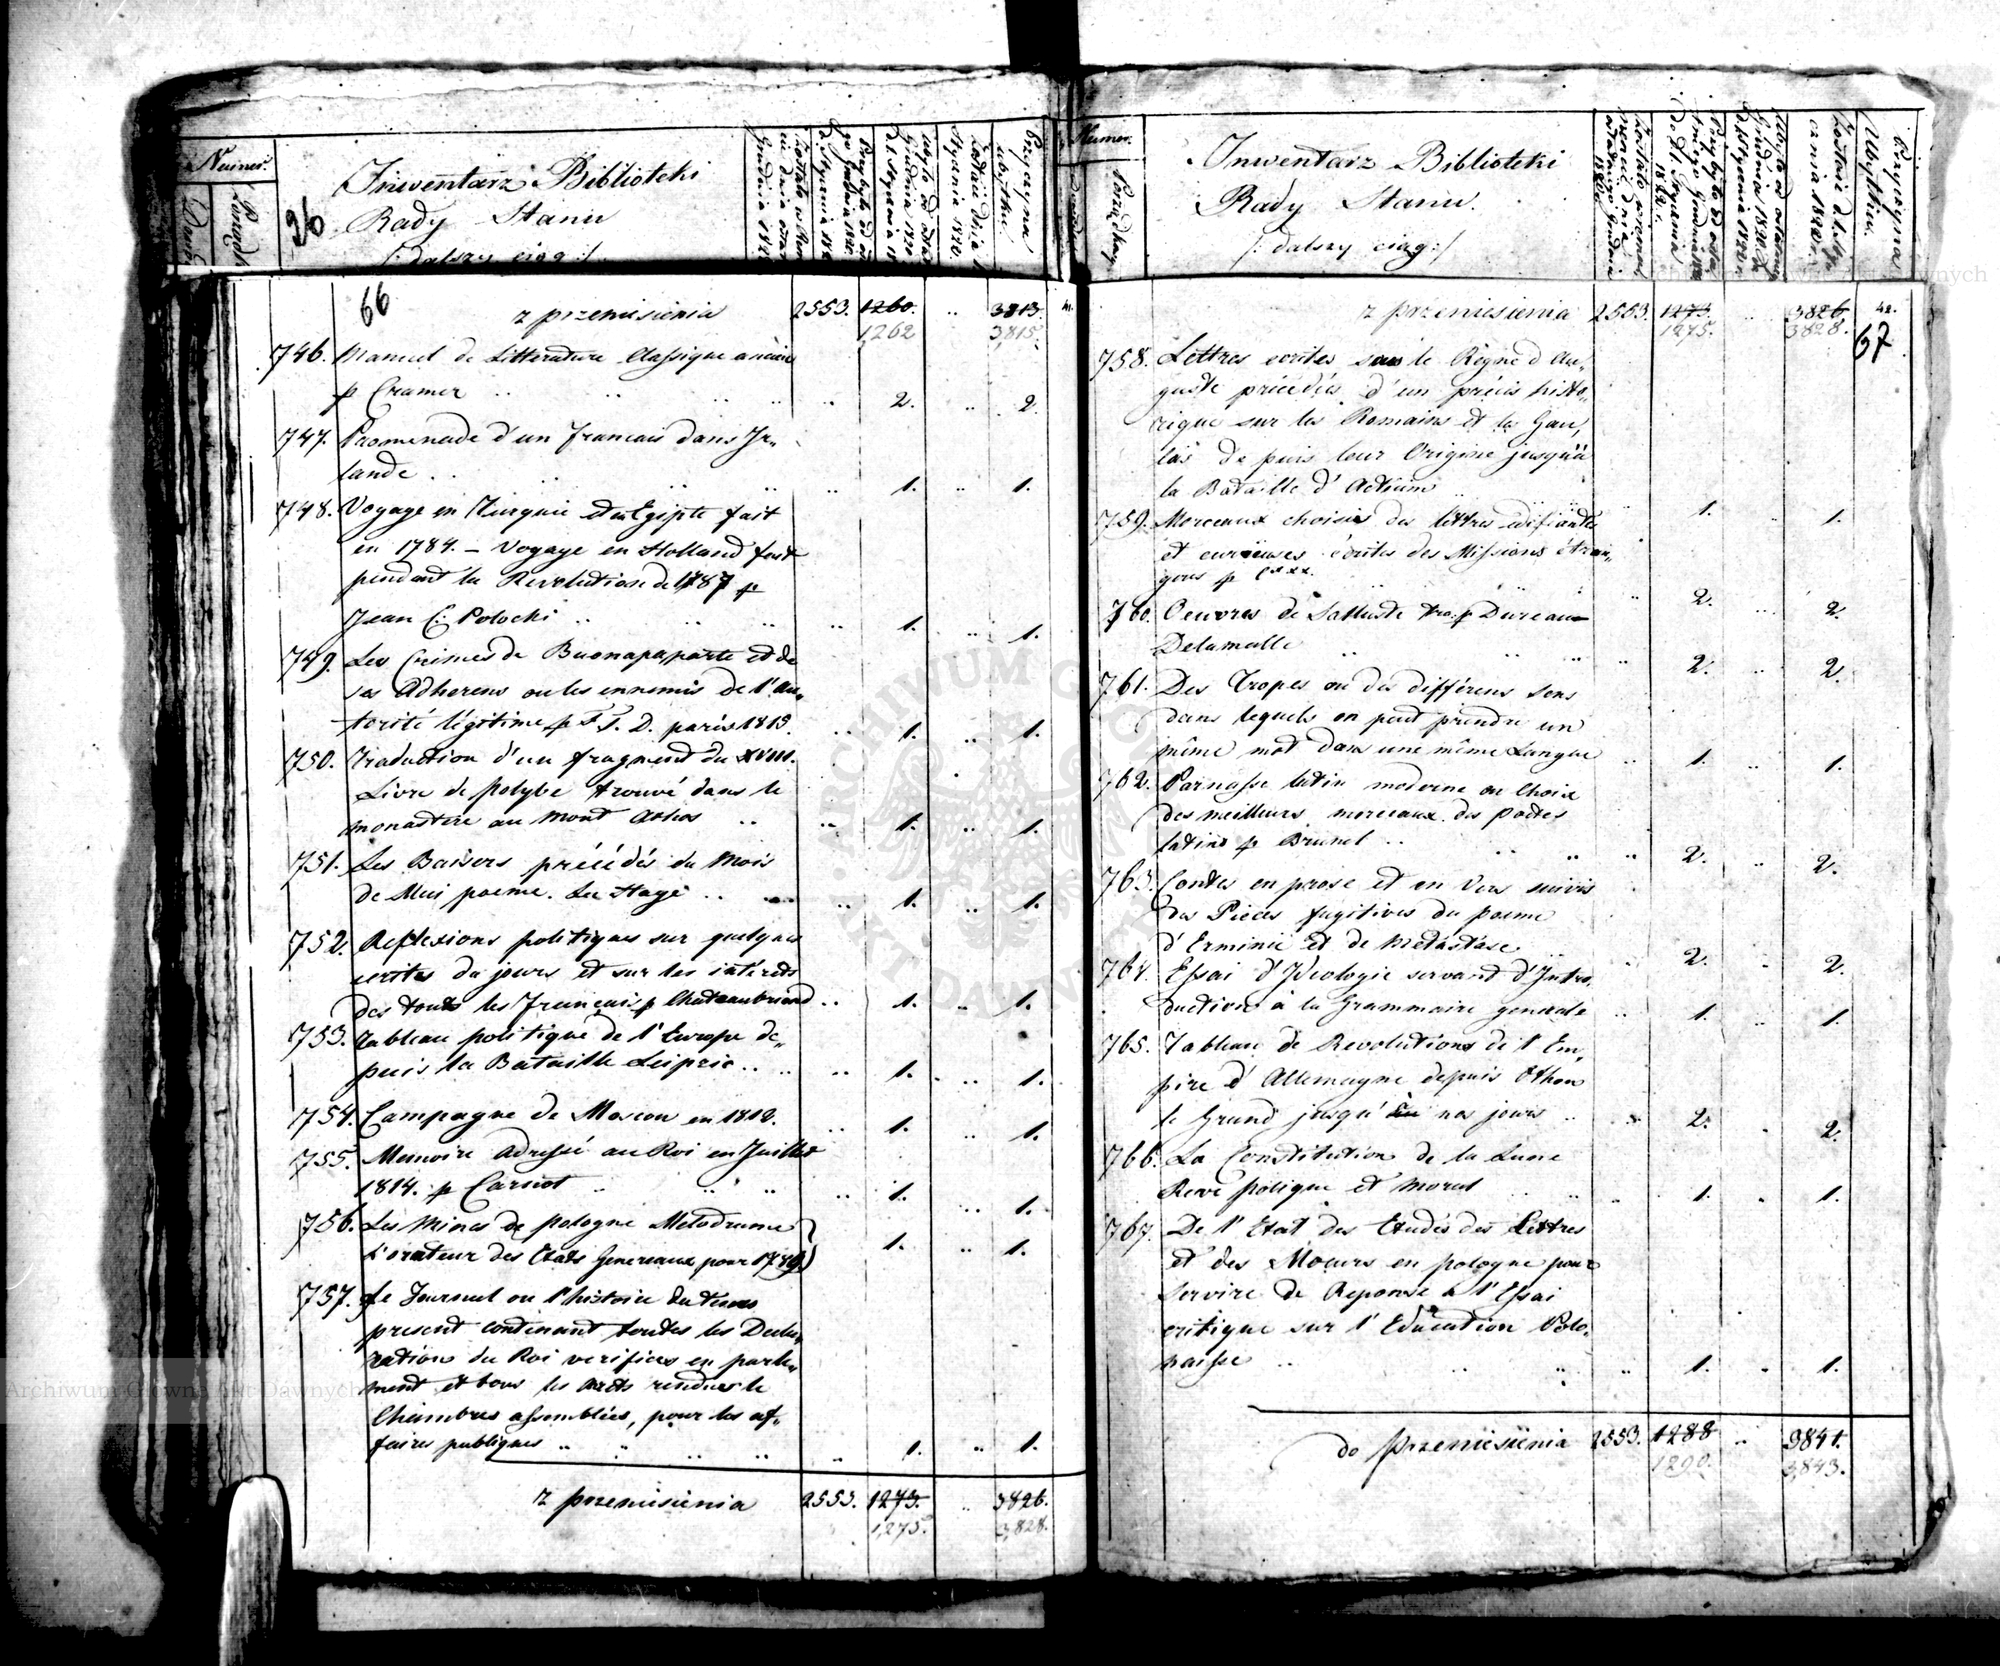 Numer.
36
Inwentarz Biblioteki
Rady Stanu
/: dalszy ciąg :/
Przyczyna
ubytku
66
z przeniesienia 2553. 1260. .. 3813.
1262 3,815.
746. Manuel de Litterature Classique ancien
p Cramer .. .. .. .. .. 2. .. 2.
747. Promenade d'un francais dans Ir-
lande .. .. .. .. .. 1. .. 1.
748. Voyage en Turquie et en Egipte fait
en 1784. – Voyage en Holland fait
pendant la Revolution de 1787 p
Jean C: Potocki .. .. .. .. 1. .. 1.
749. Les Crimes de Buonapaparte et de
ses Adherens ou les ennemis de l'Au-
torité légitime p F. T. D. paris 1815. .. 1. .. 1.
750. Traduction d'un fragment du XVIII.
Livre de polybe trouvé dans le
monastère au Mont Athos .. .. 1. .. 1.
751. Les Baisers précédés du Mois
de Mai poeme. La Haye .. .. .. 1. .. 1.
752. Reflexions politiques sur quelques
ecrites du jours et sur les intérets
des touts les francais p Chateaubriand .. 1. .. 1.
753. Tableau politique de l'Europe de-
puis la Bataille Leipzic .. .. .. 1. .. 1.
754. Campagne de Moscou en 1812. .. 1. .. 1.
755. Memoire adressé au Roi en Juillet
1814. p Carnot .. .. .. .. 1. .. 1.
756. Les Mines de pologne Melodrame
L'orateur des Etats Genereaux pour 1789.) 1. .. 1.
757. Le Journal ou l'histoire du tems
present contenant toutes les Decla-
ration du Roi verifiées en parle-
ment et tous les arets rendues le
Chambres assemblées, pour les af-
faires publiques .. .. .. .. .. 1. .. 1.
z przeniesienia 2553. 1273. .. 3826.
1,275. 3,828.
Numer.
Porządkowy
Inwentarz Biblioteki
Rady Stanu.
/: dalszy ciąg :/
Przyczyna
Ubytku.
z przeniesienia 2553. 1273. .. 3826. 42.
1275. 3828. 67
758. Lettres ecrites sous le Règne d'Au-
guste précédées d'un précis histo-
rique sur les Romains et les Gau-
lois de puis leur Origine jusqu'à
la Bataille d'Actium .. .. .. 1. .. 1.
759. Morceaux choisis des lettres édifiantes
et curieuses écrites des Missions étran-
gers p C***. .. .. .. .. 2. .. 2.
760. Oeuvres de Salluste tra: p Dureau
Delamalle .. .. .. .. 2. .. 2.
761. Des Tropes ou des différens sens
dans lequels on peut prendre un
même mot dans une même Langue .. 1. .. 1.
762. Parnasse latin moderne ou Choix
des meilleurs morceaux des poetes
latins p Brunel .. .. .. .. 2. .. 2.
763. Contes en prose et en Vers suivis
des Pieces fugitives du poeme
d'Erminie et de Metastase .. .. 2. .. 2.
764. Essai d'Ideologie servant d'Intro-
duction à la Grammaire generale .. 1. .. 1.
765. Tableau de Revolutions de l'Em-
pire d'Allemagne depuis Othon
le Grand jusqu'à nos jours .. .. 2. .. 2.
766. La Constitution de la Lune
Reve poligue et moral .. .. .. 1. .. 1.
767. De l'Etat des Etudes des Lettres
et des Moeurs en pologne pour
servire de Reponse à l'Essai
critique sur l'Education Polo-
naisse .. .. .. .. 1. .. 1.
do przeniesienia 2553. 1288 .. 3841.
1290. 3,843.
Archiwum Główne Akt Dawnych